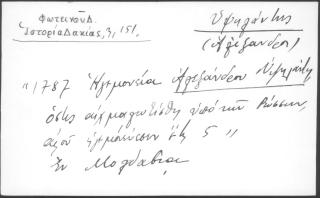 Φωτεινοῦ Δ.
Ἱστορία Δακίας, 3, 151.
Ὑψηλάντης
(Ἀλέξανδρος)
"1787 Ἡγεμονεία Ἀλεξάνδρου Ὑψηλάντη,
ὅστις αἰχμαλωτίσθη ὑπὸ τῶν Ρώσσων,
ἀφοῦ ἡγεμόνευσεν ἔτη 5"
Ἐν Μολδαβίᾳ